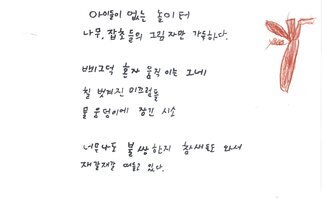 아이들이 없는 놀이터
나무, 잡초들의 그림자만 가득하다.
삐그덕 혼자 움직이는 그네
칠 벗겨진 미끄럼틀
물 웅덩이에 잠긴 시소
너무나도 불쌍한지 참새들도 와서
재잘재잘 떠들고 있다.